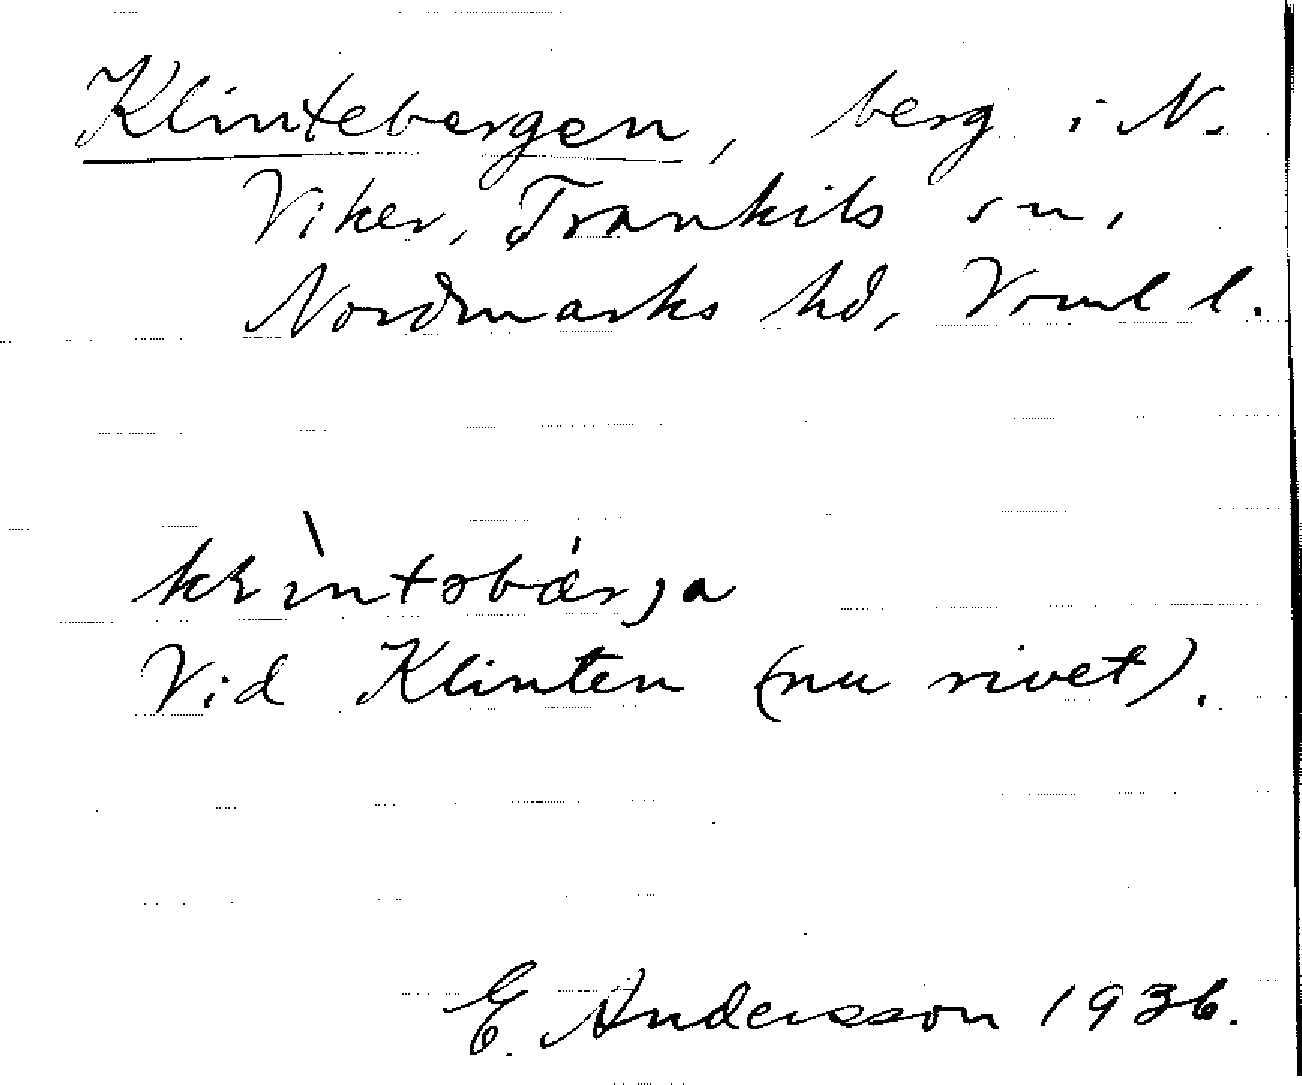 Klintebergen, berg i N.
Viker, Trankils sn,
Nordmarks hd, Vrml l.
Vid Klinten (nu rivet).
E. Andersson 1936.